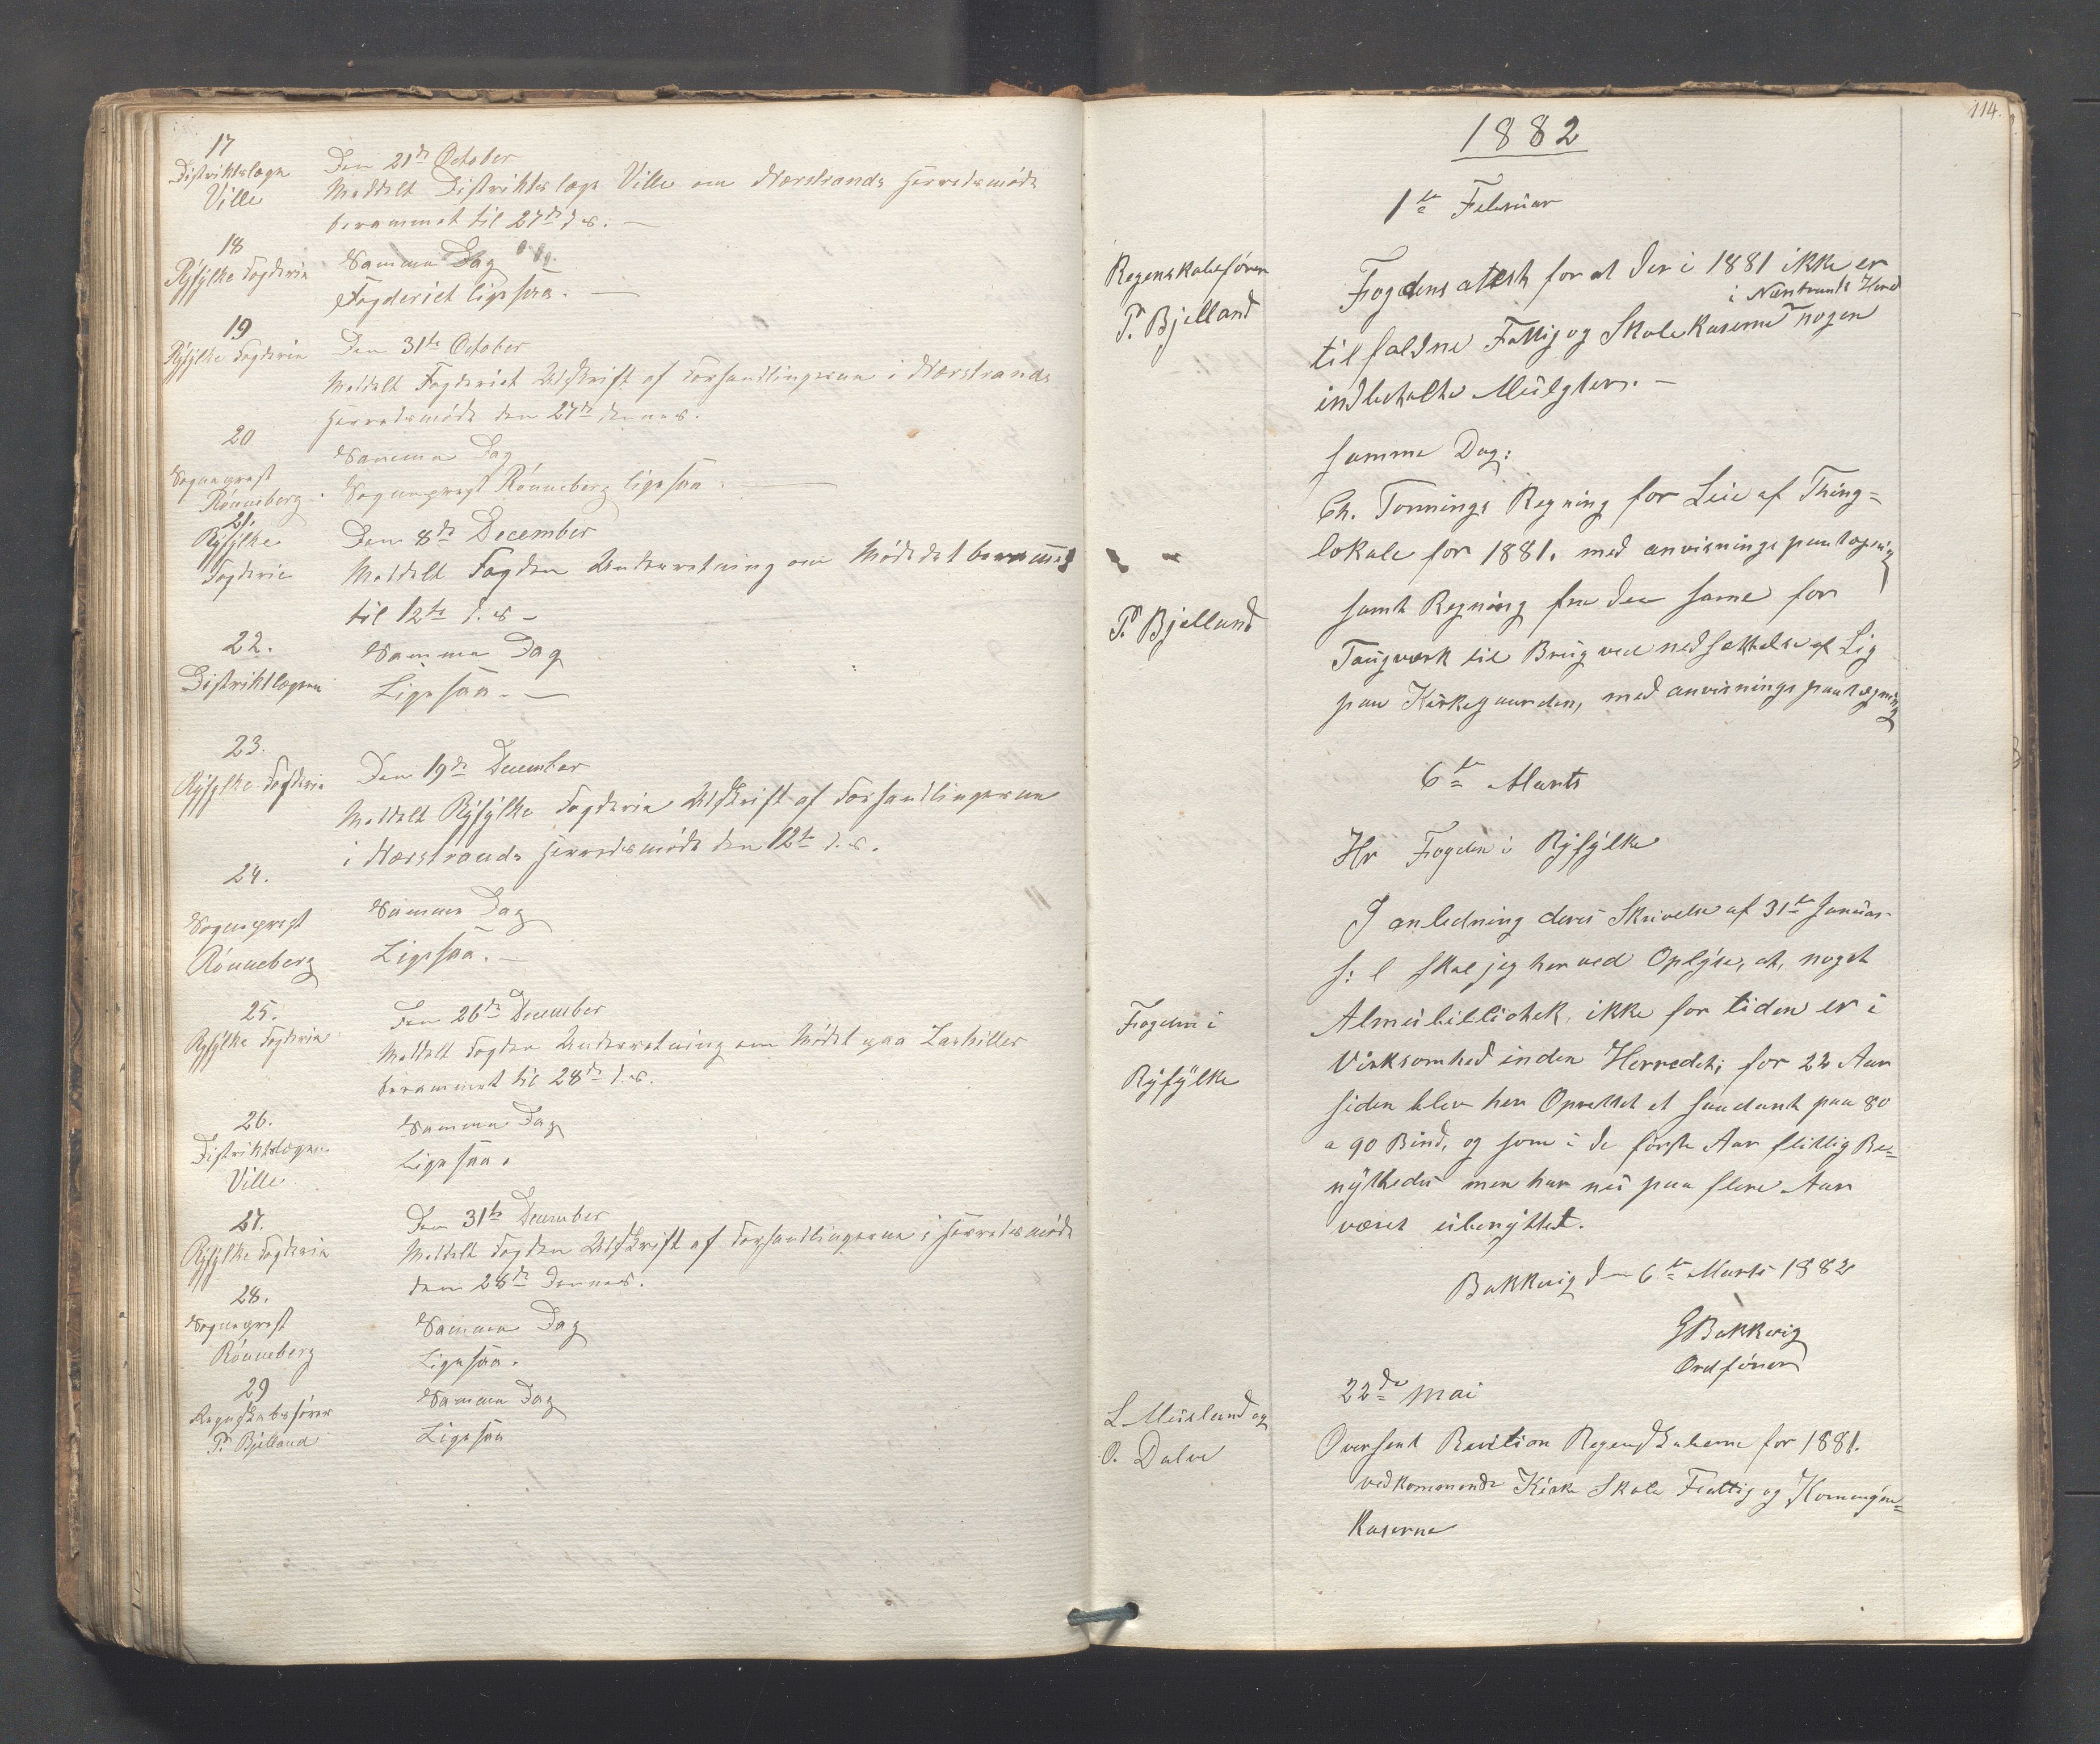 17
Distriktslæge
Ville
Den 21de October
Meddelt Distriktslæge Ville om Nærstrands Herredsmøde
berammet til 27de d. s. —
18
Ryfylke Fogderie
Samme Dag
Fogderiet ligesaa. —
19
Ryfylke Fogderie
Den 31te October
Meddelt Fogderiet Udskrift af Forhandlingerne i Nærstrands
Herredsmøde den 27de dennes.
20
Sognepræst
Rönneberg.
Samme Dag
Sognepræst Rönneberg ligesaa. —
21.
Ryfylke
Fogderie
Den 8de December
Meddelt Fogden Underretning om Mødedet berammet
til 12te d. s. –
22.
Distriktlægen
Samme Dag
Ligesaa. —
23.
Ryfylke Fogderie
Den 19de December
Meddelt Ryfylke Fogderie Udskrift af Forhandlingerne
i Nærstrands Herredsmøde den 12te d. s.
24.
Sognepræst
Rönneberg
Samme Dag
Ligesaa. —
25.
Ryfylke Fogderie
Den 26de December
Meddelt Fogden Underretning om Mødet paa
berammet til 28de d. s.
26.
Distriktslægen
Ville
Samme Dag
Ligesaa.
27.
Ryfylke Fogderie
Den 31te December
Meddelt Fogden Udskrift af Forhandlingerne i Herredsmøde
den 28de Dennes.
28.
Sognepræst
Rönneberg
Samme Dag
Ligesaa.
29
Regnskabsfører
P. Bjelland
Samme Dag
Ligesaa
114.
1882
1te Februar
Regenskabsfören
P. Bjelland
Fogdens atest for at der i 1881 ikke er
i Nærstrands Hered
tilfaldne Fattig og Skolekaserne nogen
indbetalte Mulgter. —
samme Dag:
Ch. Tonnings Regning for Leie af Thing=
lokale for 1881. med anvisnings paategning
P. Bjelland
samt Regning fra den same for
Taugværk til Brug ved nedsættelse af Lig
paa Kirkegaarden, med anvisnings paategning
6te Marts
Hr Fogden i Ryfylke
I anledning deres Skrivelse af 31te Januar
f: l skal jeg herved Oplyse, at, noget
Fogden i
Ryfylke
Almubibliothek ikke for tiden er i
Virksomhed inden Herredet; for 22 Aar
siden blev her Oprettet et saadant paa 80
a 90 Bind, og som i de første Aar flittig Be=
nyttedes men har nu paa flere Aar
været ubenyttet.
Bakkevig d– 6te Marts 1882
GBakkevig
Ordförer
22de Mai
L. Musland og
O. Dalve
Oversent Revition Regenskaberne for 1881.
vedkommende Kirke Skole Fattig og Komungne=
Kaserne